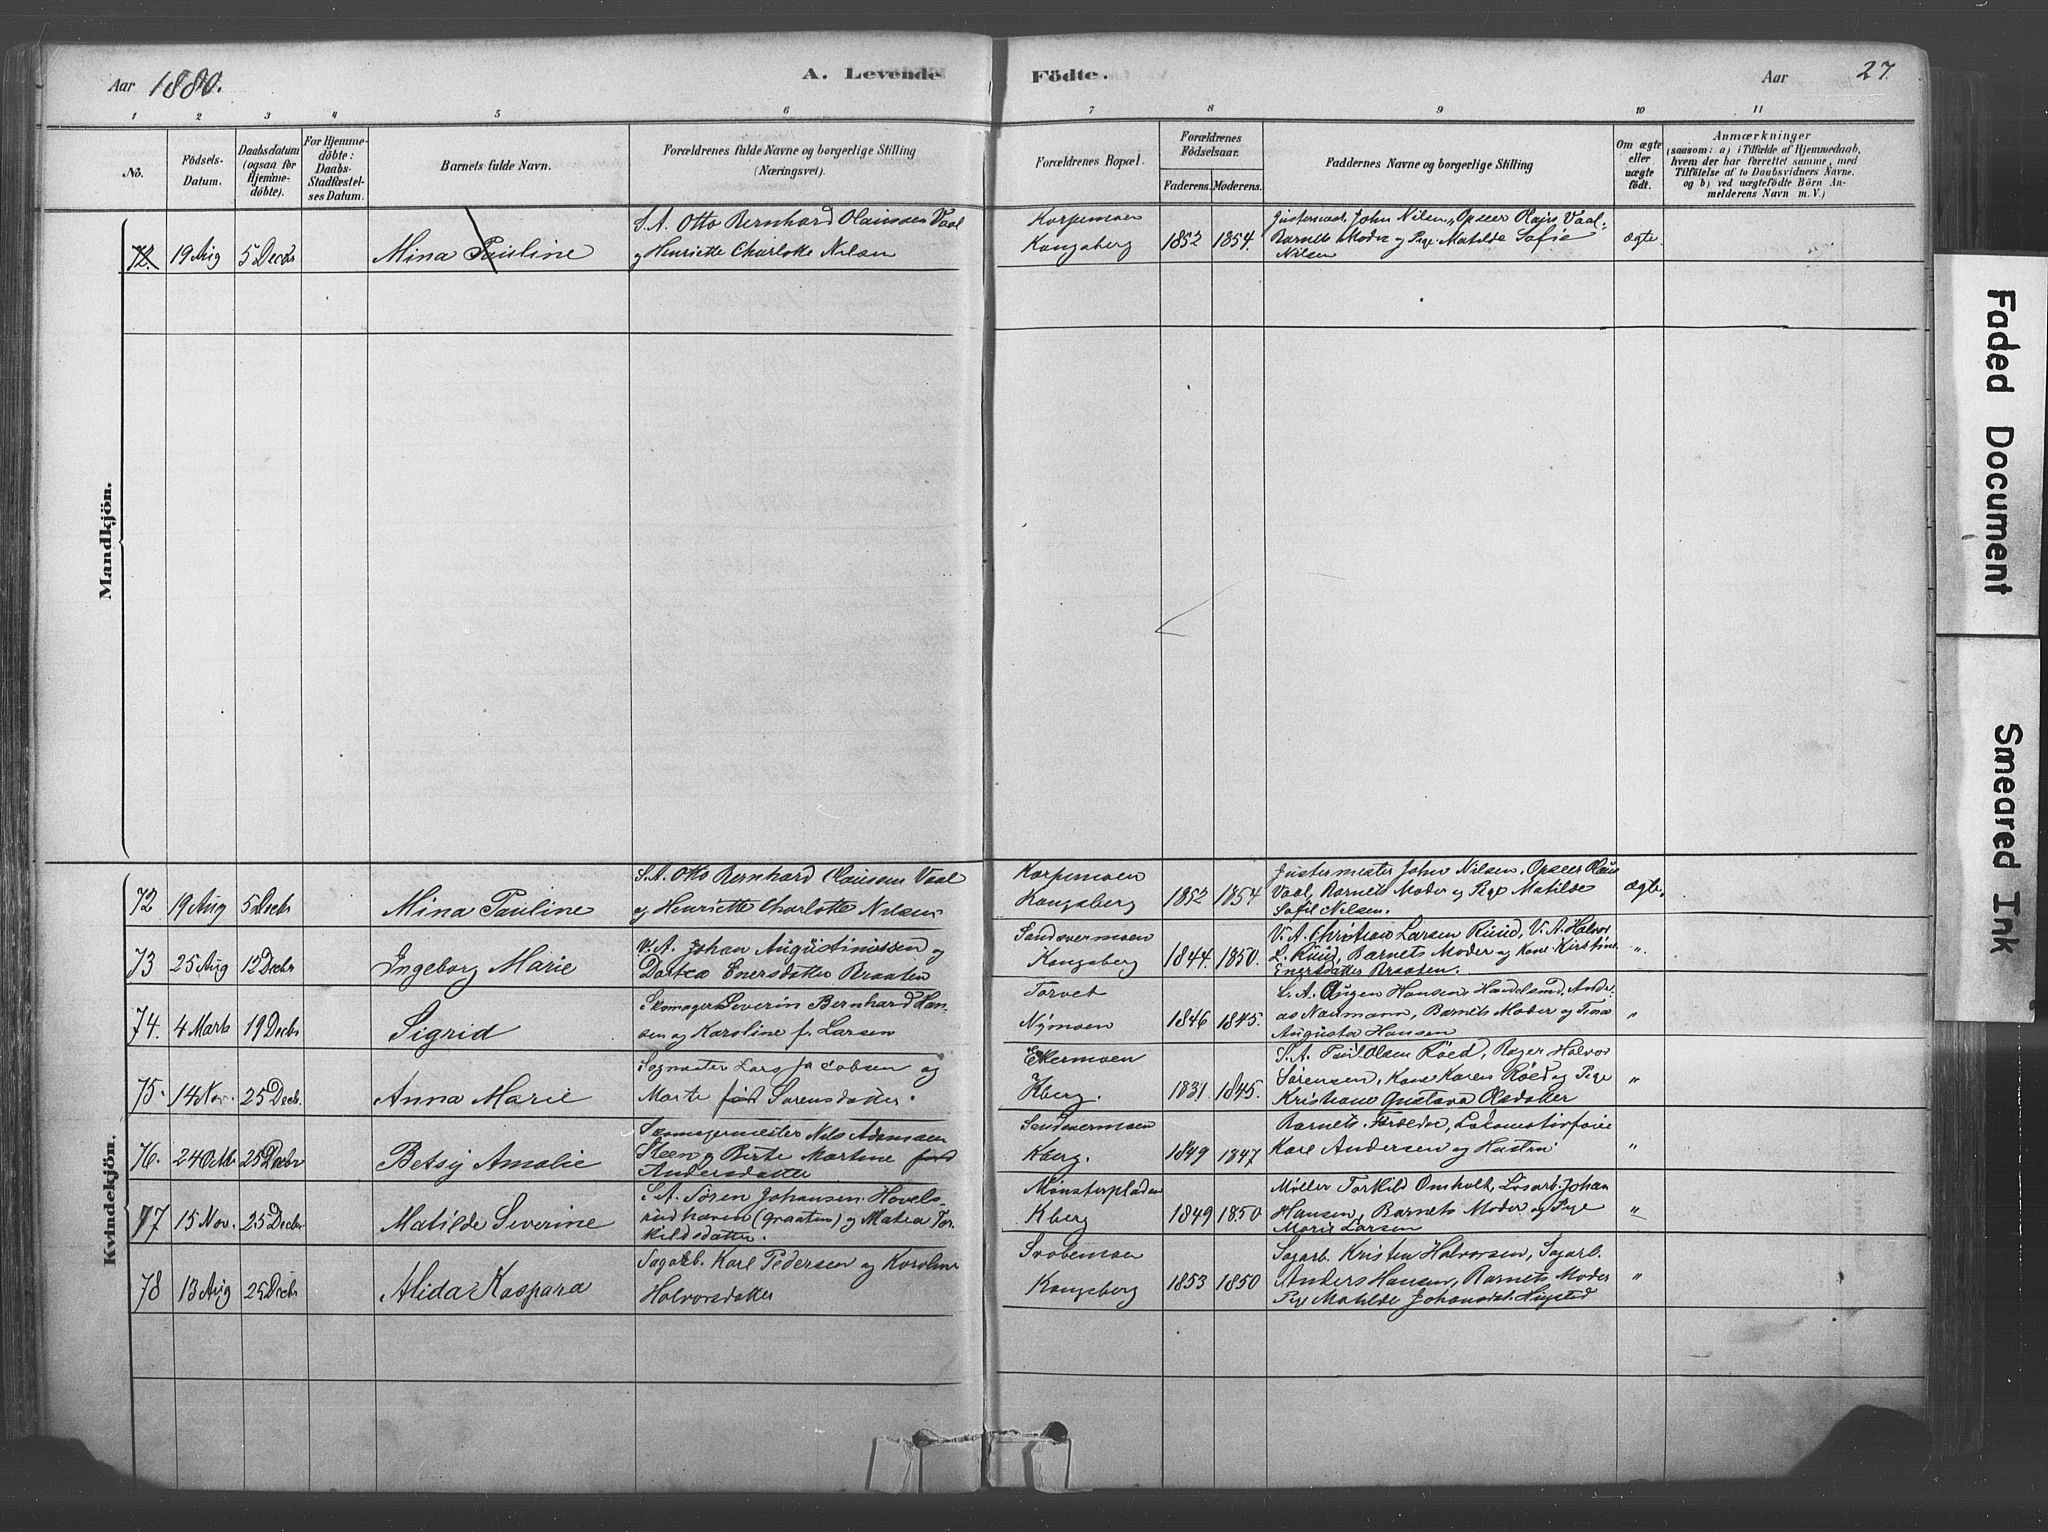 Aar 1880. A. Levende Födte. Aar 27.
1 2 3 4 5 6 7 8 9 10 11
No.
Födsels-
Datum.
Daabsdatum
(ogsaa for
Hjemme-
döbte).
For Hjemme-
döbte:
Daabs-
Stadfæstel-
ses Datum.
Barnets fulde Navn.
Forældrenes fulde Navne og borgerlige Stilling
(Næringsvei).
Forældrenes Bopæl.
Forældrenes
Födselsaar.
Faderens. Moderens.
Faddernes Navne og borgerlige Stilling
Om ægte
eller
uægte
födt.
Anmærkninger
(saasom: a) i Tilfælde af Hjemmedaab,
hvem der har forrettet samme, med
Tilföielse af to Daabsvidners Navne.
og b) ved uægtefödte Börn An-
melderens Navn m. V.)
Mandkjön.
72. 19 Aug 5 Decbr Mina Pauline
S. A. Otto Bernhard Clausen Vaal
og Henriette Charlotte Nilsen
Korpemoen
Kongsberg
1852 1854.
Justermest. John Nilsen, Opseer Vaal.
Barnets Moder og Pige Matilde Sofie
Nilsen
ægte
Kvindekjön.
72 19 Aug 5 Decbr Mina Pauline
S. A. Otto Bernhard Clausen Vaal
og Henriette Charlotte Nilsen
Korpemoen
Kongsberg
1852 1854
Justermester John Nilsen, Opseer
Vaal, Barnets Moder og Pige Matilde
Sofie Nilsen.
ægte.
73 25 Aug 12 Decbr Ingeborg Marie
V. A. Johan Augustinussen og
Dortea Enersdatter Braaten
Sandsvermoen
Kongsberg
1844. 1850.
V. A. Christian Larsen Ruud, V. A. Halvor
L. Ruud, Barnets Moder og Kone Kirstine
Enersdatter Braaten.
"
74. 4 Marts 19 Decbr Sigrid
Skomager Severin Bernhard Han-
sen og Karoline f. Larsen
Torvet
Nymoen
1846 1845.
Hansen, Handelsmd. Andre-
as Naumann, Barnets Moder og
Augusta Hansen
"
75. 14 Nov. 25 Decb. Anna Marie
Lars Jacobsen og
Marte født Sørensdatter.
Ekermoen
Kberg.
1831. 1845.
S. A. Paul Olsen Røed, Halvor
Sørensen, Kone Karen Røed og Pige
Kristiane Gustava Olsdatter
"
76. 24 Octb. 25 Decbr Betsy Amalie
Skomagermester Nils Adamsen
Steen og Birte Martine født
Andersdatter
Sandsvermoen
Kberg.
1849 1847
Barnets Forældre, Lokomotivfører
Karl Andersen og Hustru
"
77 15 Nov. 25 Decbr Matilde Severine
S. A. Søren Johansen Hovels-
rudhaven (Graaten) og Matea Tor-
kildsdatter.
Mønsterpladsen
Kberg
1849 1850
Møller Torkild Omholt, Løsarb. Johan
Hansen, Barnets Moder og Pige
Marie Larsen
"
78 13 Aug 25 Decbr Alida Kaspara
Sagarb. Karl Pedersen og Karoline
Halvorsdatter
Kongsberg
1853 1850
Sagarb. Kristen Halvorsen, Sagarb.
Anders Hansen, Barnets Moder
Pige Matilde Johansdt.
"
Faded Document
Smeared Ink